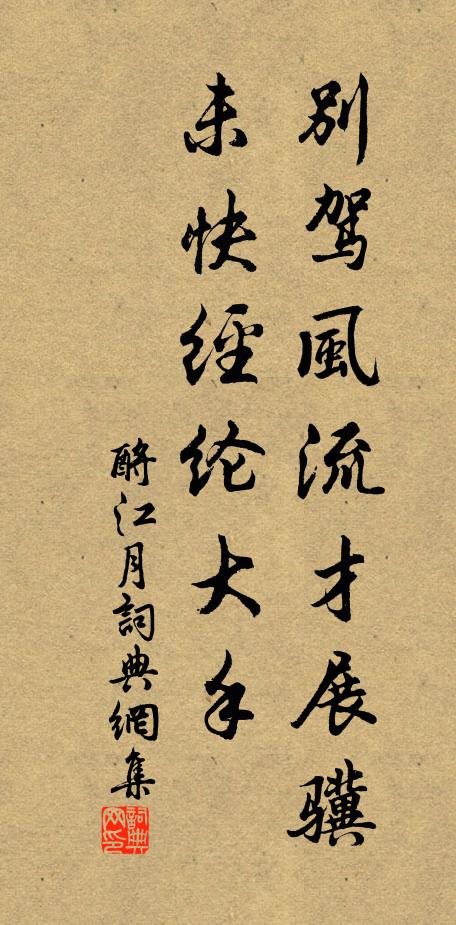 別駕風流才展驥
未快經纶大手
酹江月詞典網集
詞典网印